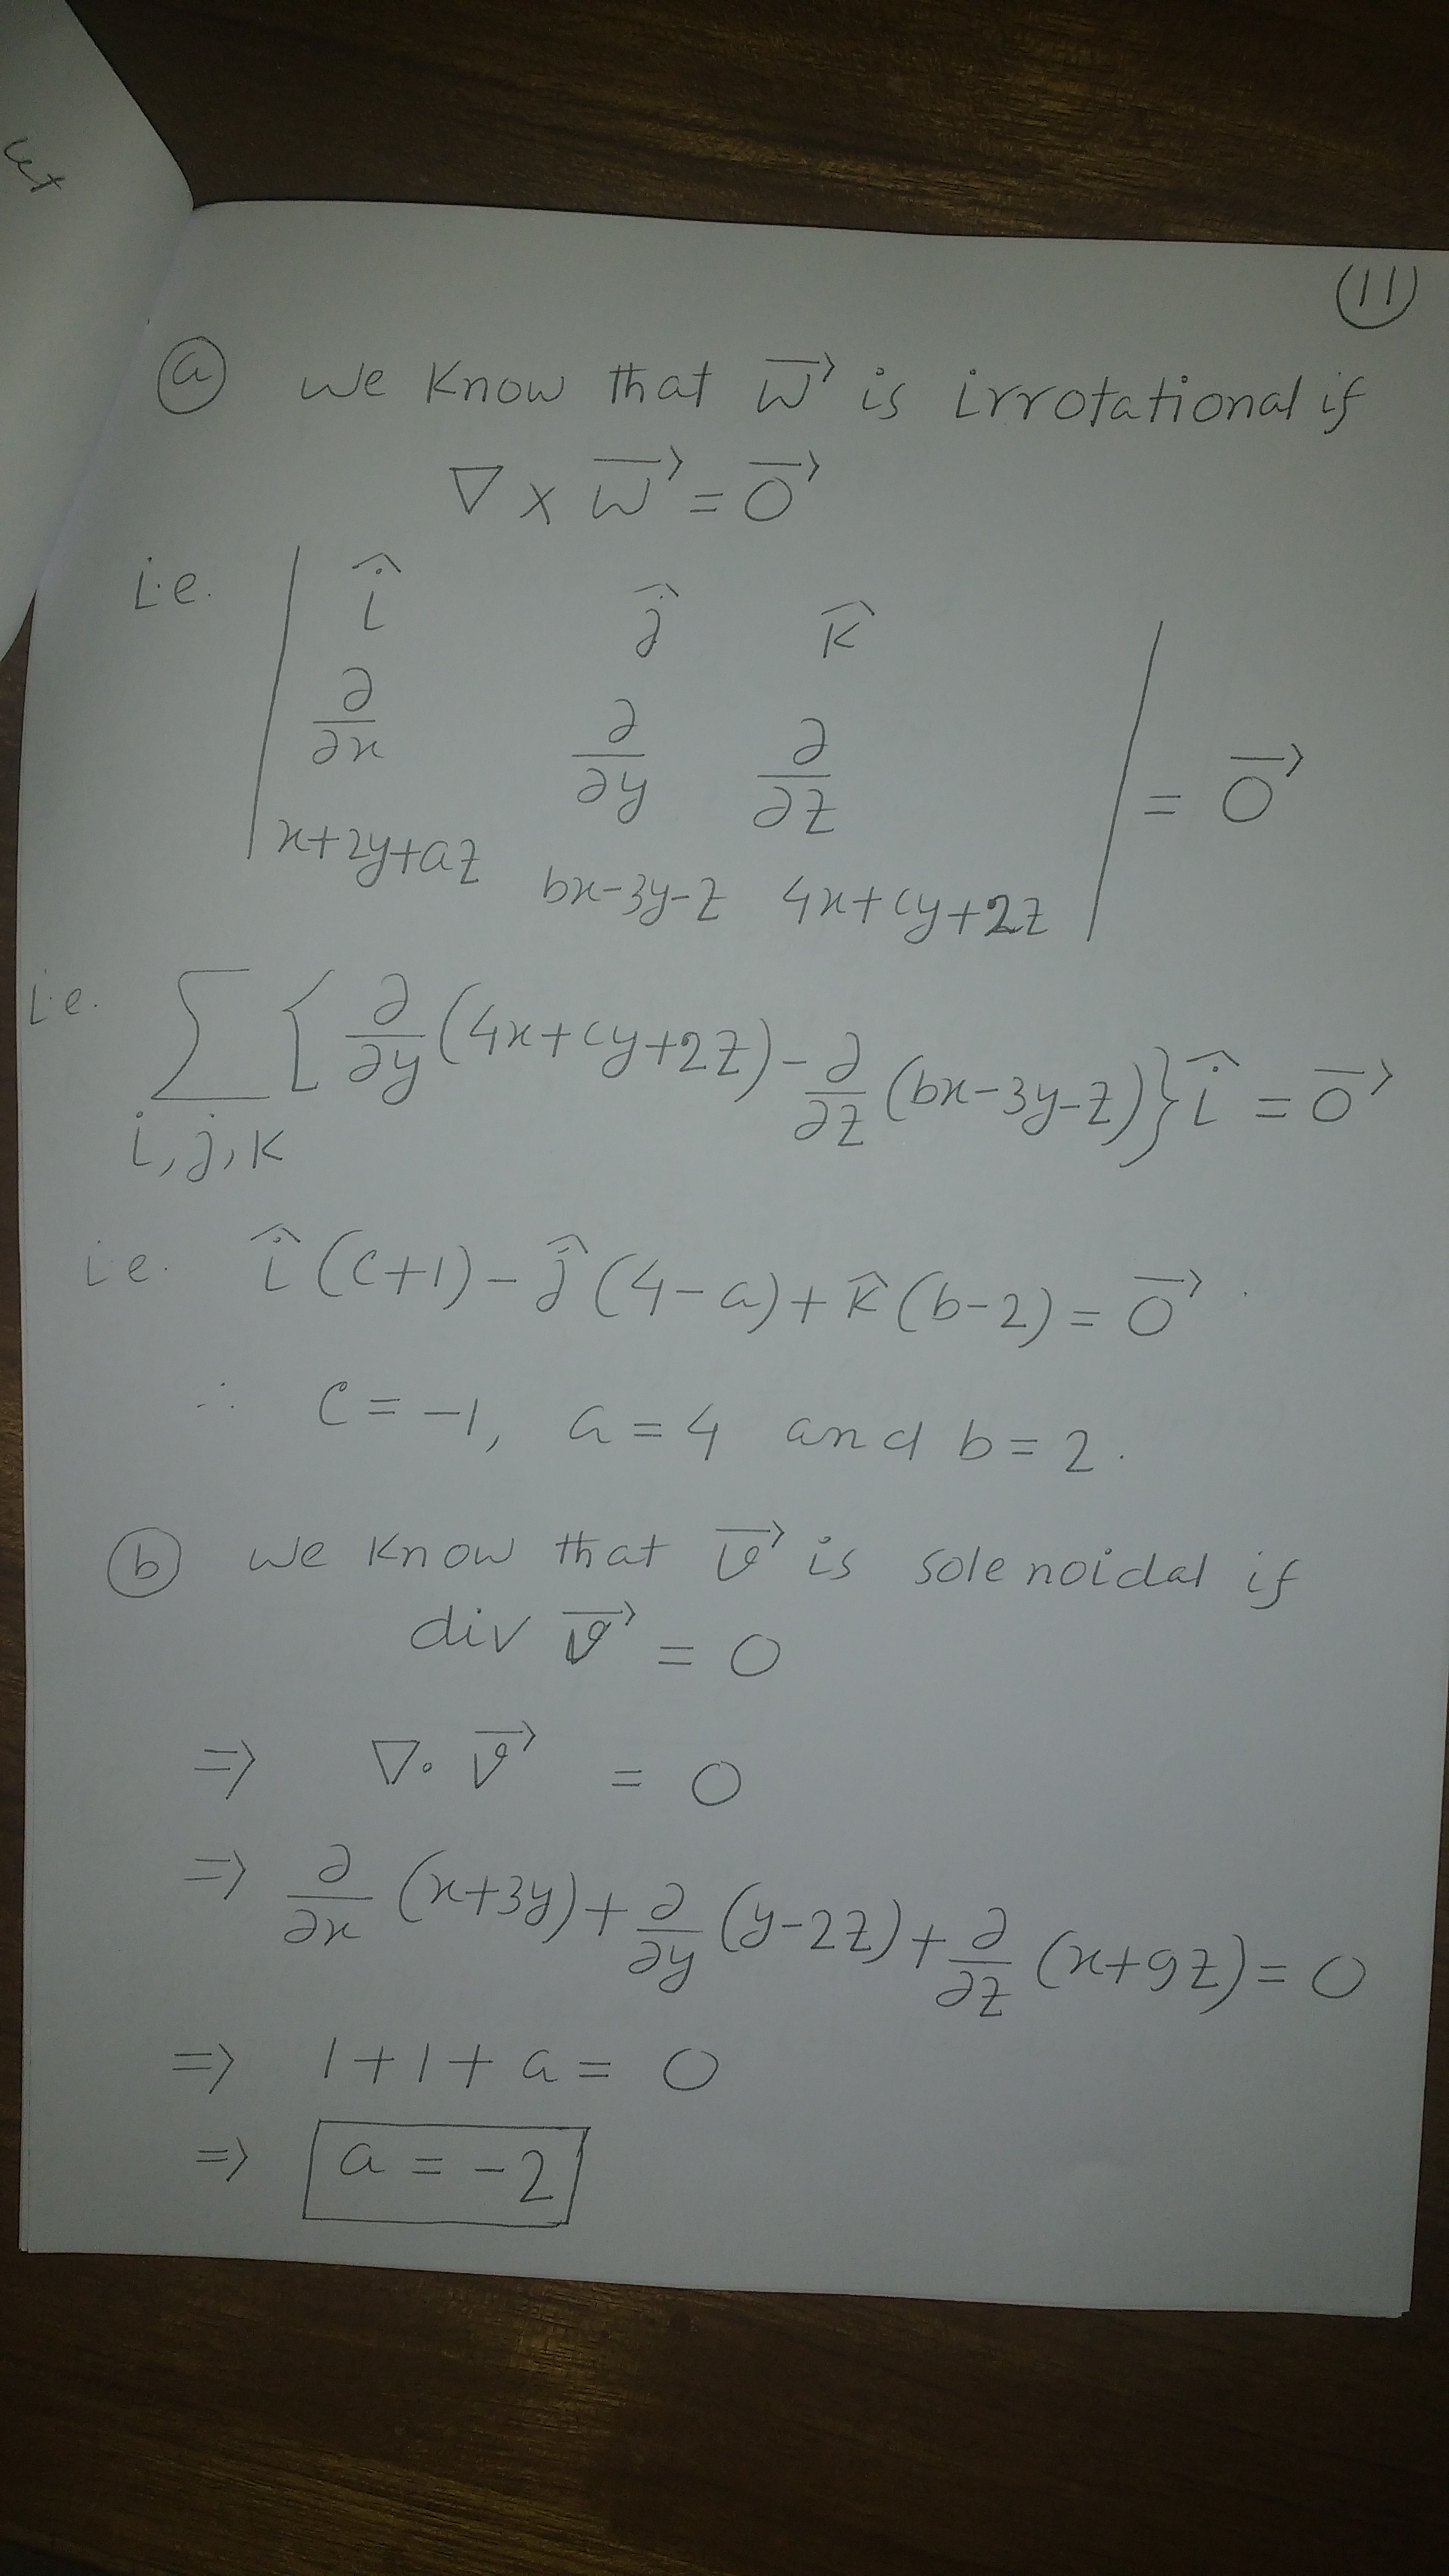 (11)
(a) We know that w⃗ is irrotational if
∇ × w⃗ = 0⃗
i.e. | î ĵ k̂ |
| ∂/∂x ∂/∂y ∂/∂z | = 0⃗
| x+2y+az bx-3y-z 4x+cy+2z |
i.e. ∑ i,j,k { ∂/∂y (4x+cy+2z) - ∂/∂z (bx-3y-z)} î = 0⃗
i.e. î (c+1) - ĵ (4-a) + k̂ (b-2) = 0⃗
∴ c = -1, a = 4 and b = 2.
(b) We know that v⃗ is solenoidal if
div v⃗ = 0
=> ∇. v⃗ = 0
=> ∂/∂x (x+3y) + ∂/∂y (y-2z) + ∂/∂z (x+9z) = 0
=> 1+1+a = 0
=> a = -2